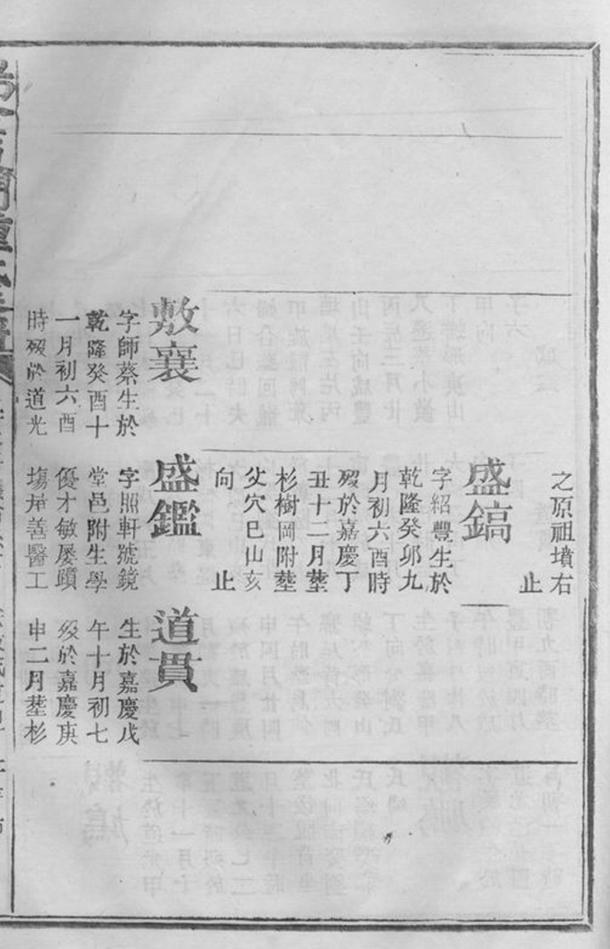 之原祖墳右
止
盛鎬
字紹豐生於
乾隆癸卯九
月初六酉時
殁於嘉慶丁
丑十二月塟
杉樹岡附塟
父穴巳山亥
向
止
敷襄
字師蔡生於
乾隆癸酉十
一月初六酉
時殁於道光
盛鑑
字照軒號鏡
堂邑附生學
優才敏屢躓
塲屋善醫工
道貫
生於嘉慶戊
午十月初七
殁於嘉慶庚
申二月塟杉